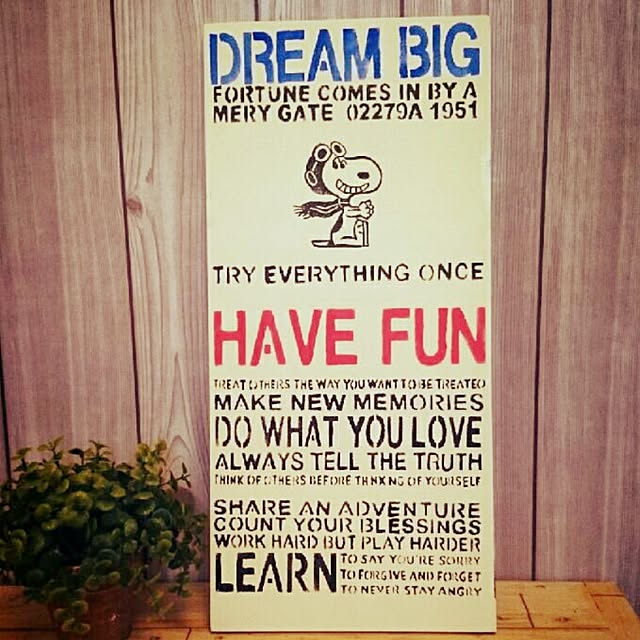 DREAM BIG
FORTUNE COMES IN BY A
MERY GATE 02279A 1951
TRY EVERYTHING ONCE
HAVE FUN
TREAT OTHERS THE WAY YOU WANT TO BE TREATED
MAKE NEW MEMORIES
DO WHAT YOU LOVE
ALWAYS TELL THE TRUTH
THINK OF OTHERS BEFORE THINKING OF YOURSELF
SHARE AN ADVENTURE
COUNT YOUR BLESSINGS
WORK HARD BUT PLAY HARDER
LEARN TO SAY YOU'RE SORRY
TO FORGIVE AND FORGET
TO NEVER STAY ANGRY